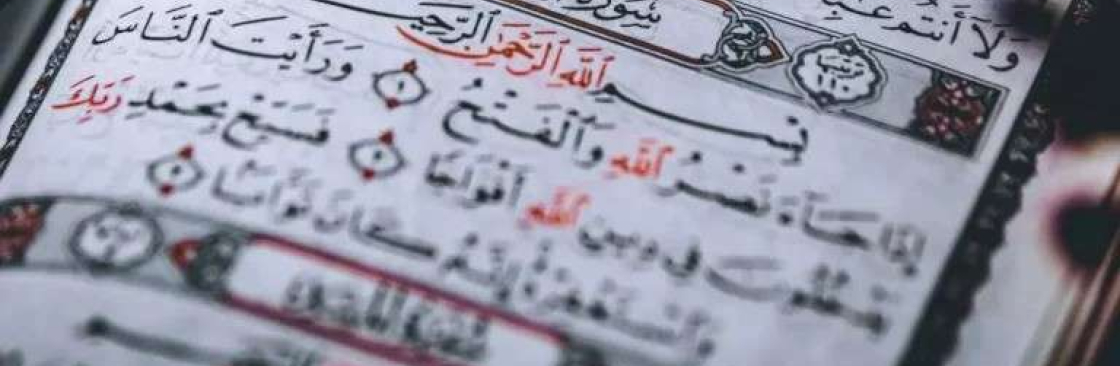 وَلَا أَنتُمْ
سُورَةُ
رتبها ١١٠
بِسْمِ ٱللَّهِ ٱلرَّحْمَٰنِ ٱلرَّحِيمِ
إِذَا جَآءَ نَصْرُ ٱللَّهِ وَٱلْفَتْحُ ١ وَرَأَيْتَ ٱلنَّاسَ
يَدْخُلُونَ فِى دِينِ ٱللَّهِ أَفْوَاجًا ٢ فَسَبِّحْ بِحَمْدِ رَبِّكَ
وَٱسْتَغْفِرْهُ إِنَّهُۥ كَانَ تَوَّابًۢا ٣